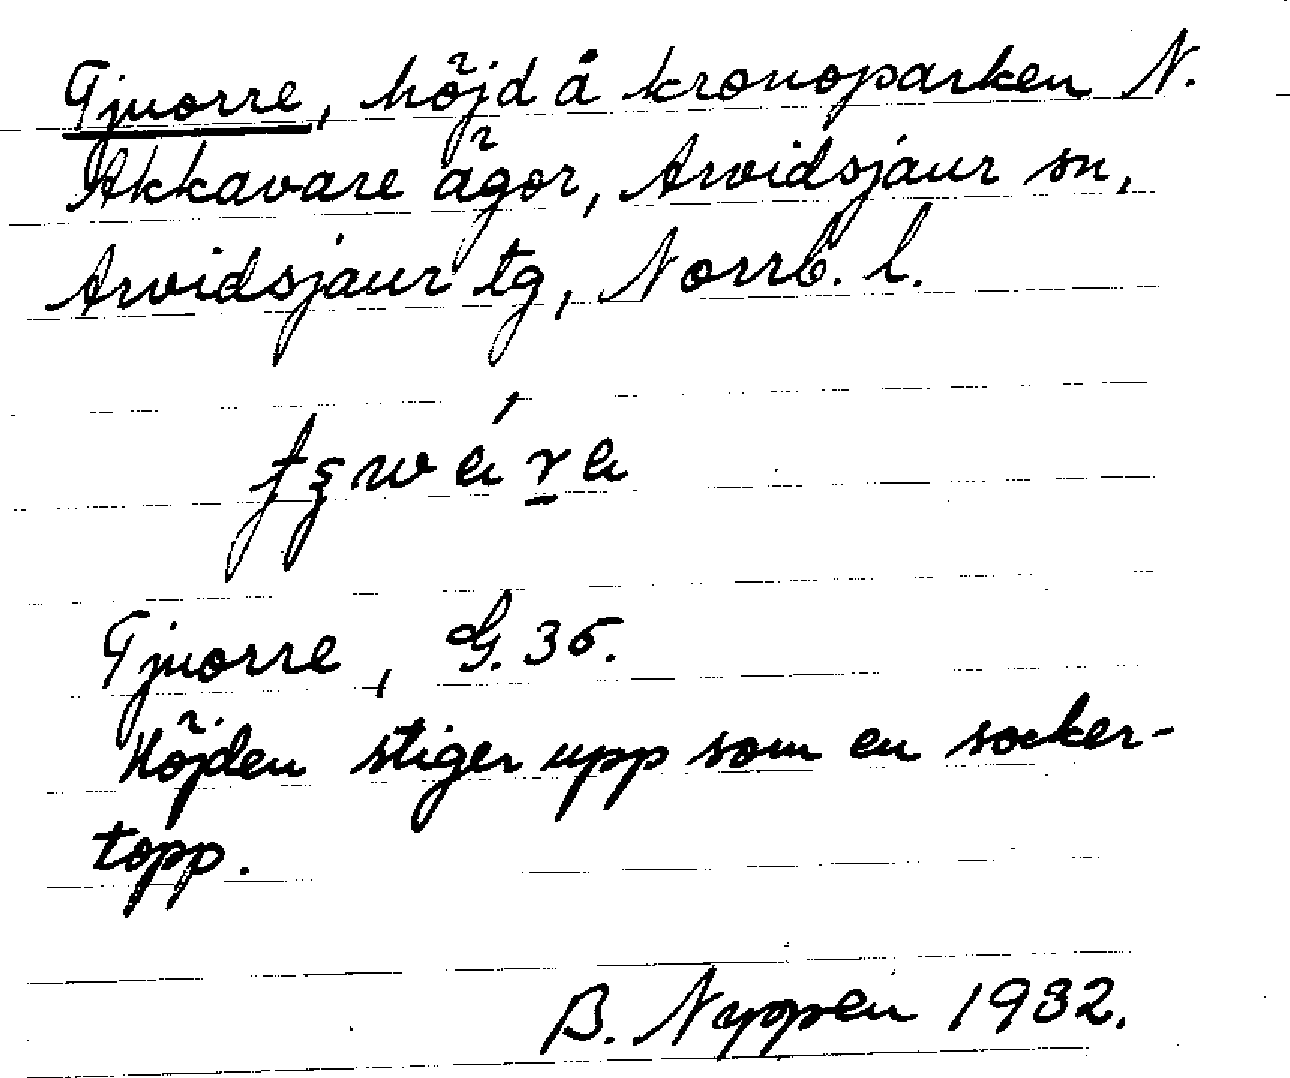 Tjuorre, höjd å kronoparken N.
Akkavare ägor, Arvidsjaur sn,
Arvidsjaur tg, Norrb. l.
Tjuorre, G. 36.
Höjden stiger upp som en socker-
topp.
B. Nyppen 1932.